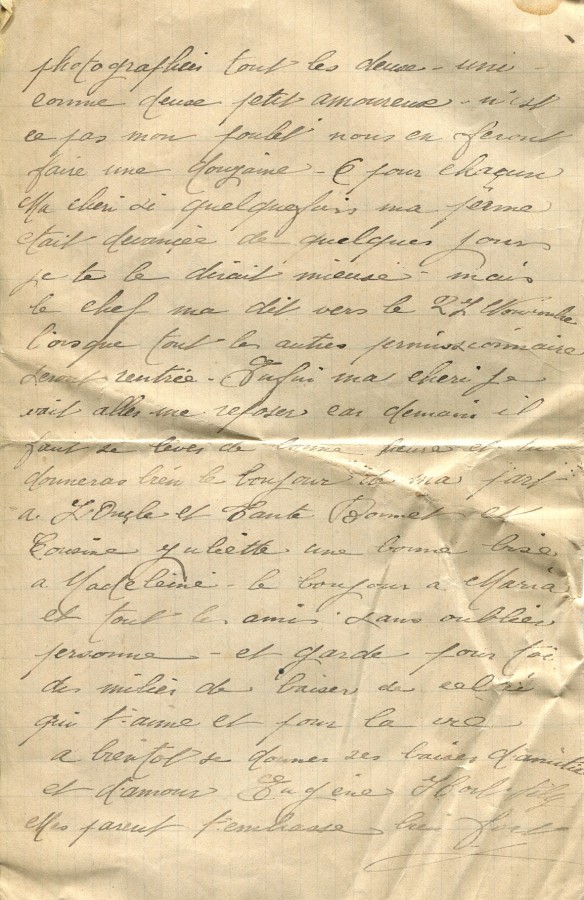 photographier tout les deuse - uni -
comme deuse petit amoureuse - n'est
ce pas mon poulet nous en feront
faire une douzaine - 6 pour chaqun
Ma cheri si quelquefois ma perme
etait devancée de quelques jours
je te le dirait mieuse - mais
le chef ma dit vers le 27 Novembre
lorsque tout les autres permissionnaire
seront rentrée - Enfin ma cheri je
vait aller me reposer car demain il
faut se lever de bonne heure et tu
donneras bien le bonjour de ma part
a L'Oncle et Tante Bonnet et
Cousine Yuliette une bonne bise
a Madeleine - le bonjour a Maria
et tout les amis sans oublier
personne - et garde pour toi
des milier de baiser de celui
qui t'aime et pour la vie
a bientot se donner ses baiser d'amitié
et d'amour Eugène
Mes parent t'embrasse bien fort